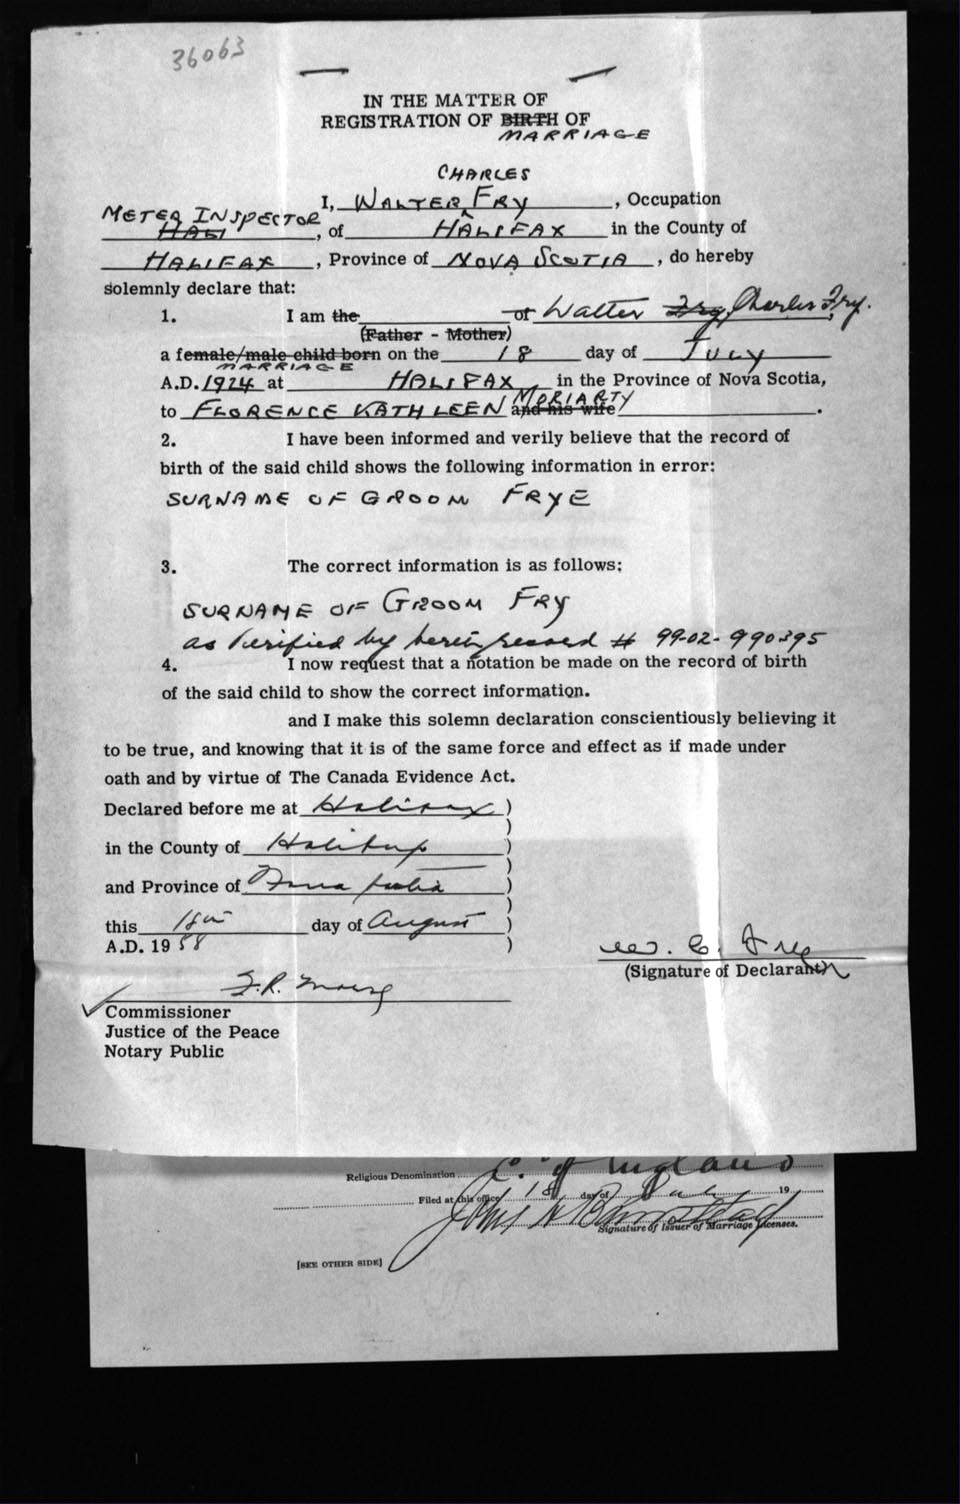 36063
IN THE MATTER OF
REGISTRATION OF BIRTH OF
MARRIAGE
CHARLES
I, WALTER FRY, Occupation
METER INSPECTOR
HALI, of HALIFAX in the County of
HALIFAX, Province of NOVA SCOTIA, do hereby
solemnly declare that:
1. I am the of Walter Fry, Charles Fry.
(Father - Mother)
a female/male child born on the 18 day of JULY
MARRIAGE
A.D. 1924 at HALIFAX, in the Province of Nova Scotia,
to FLORENCE KATHLEEN and his wife MORIARTY.
2. I have been informed and verily believe that the record of
birth of the said child shows the following information in error:
SURNAME OF GROOM FRYE
3. The correct information is as follows:
SURNAME OF GROOM FRY
as verified by record # 99-02-990395
4. I now request that a notation be made on the record of birth
of the said child to show the correct information.
and I make this solemn declaration conscientiously believing it
to be true, and knowing that it is of the same force and effect as if made under
oath and by virtue of The Canada Evidence Act.
Declared before me at Halifax )
)
in the County of Halifax )
)
and Province of Nova Scotia )
)
this 18th day of August )
A.D. 1958 )
W. C. Fry
(Signature of Declarant)
Commissioner
Justice of the Peace
Notary Public
Religious Denomination C. of England
Filed at this office 18 day of July 19
John H Barnstead
Signature of Issuer of Marriage Licenses.
[SEE OTHER SIDE]